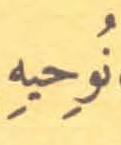 نُوحِيهِ